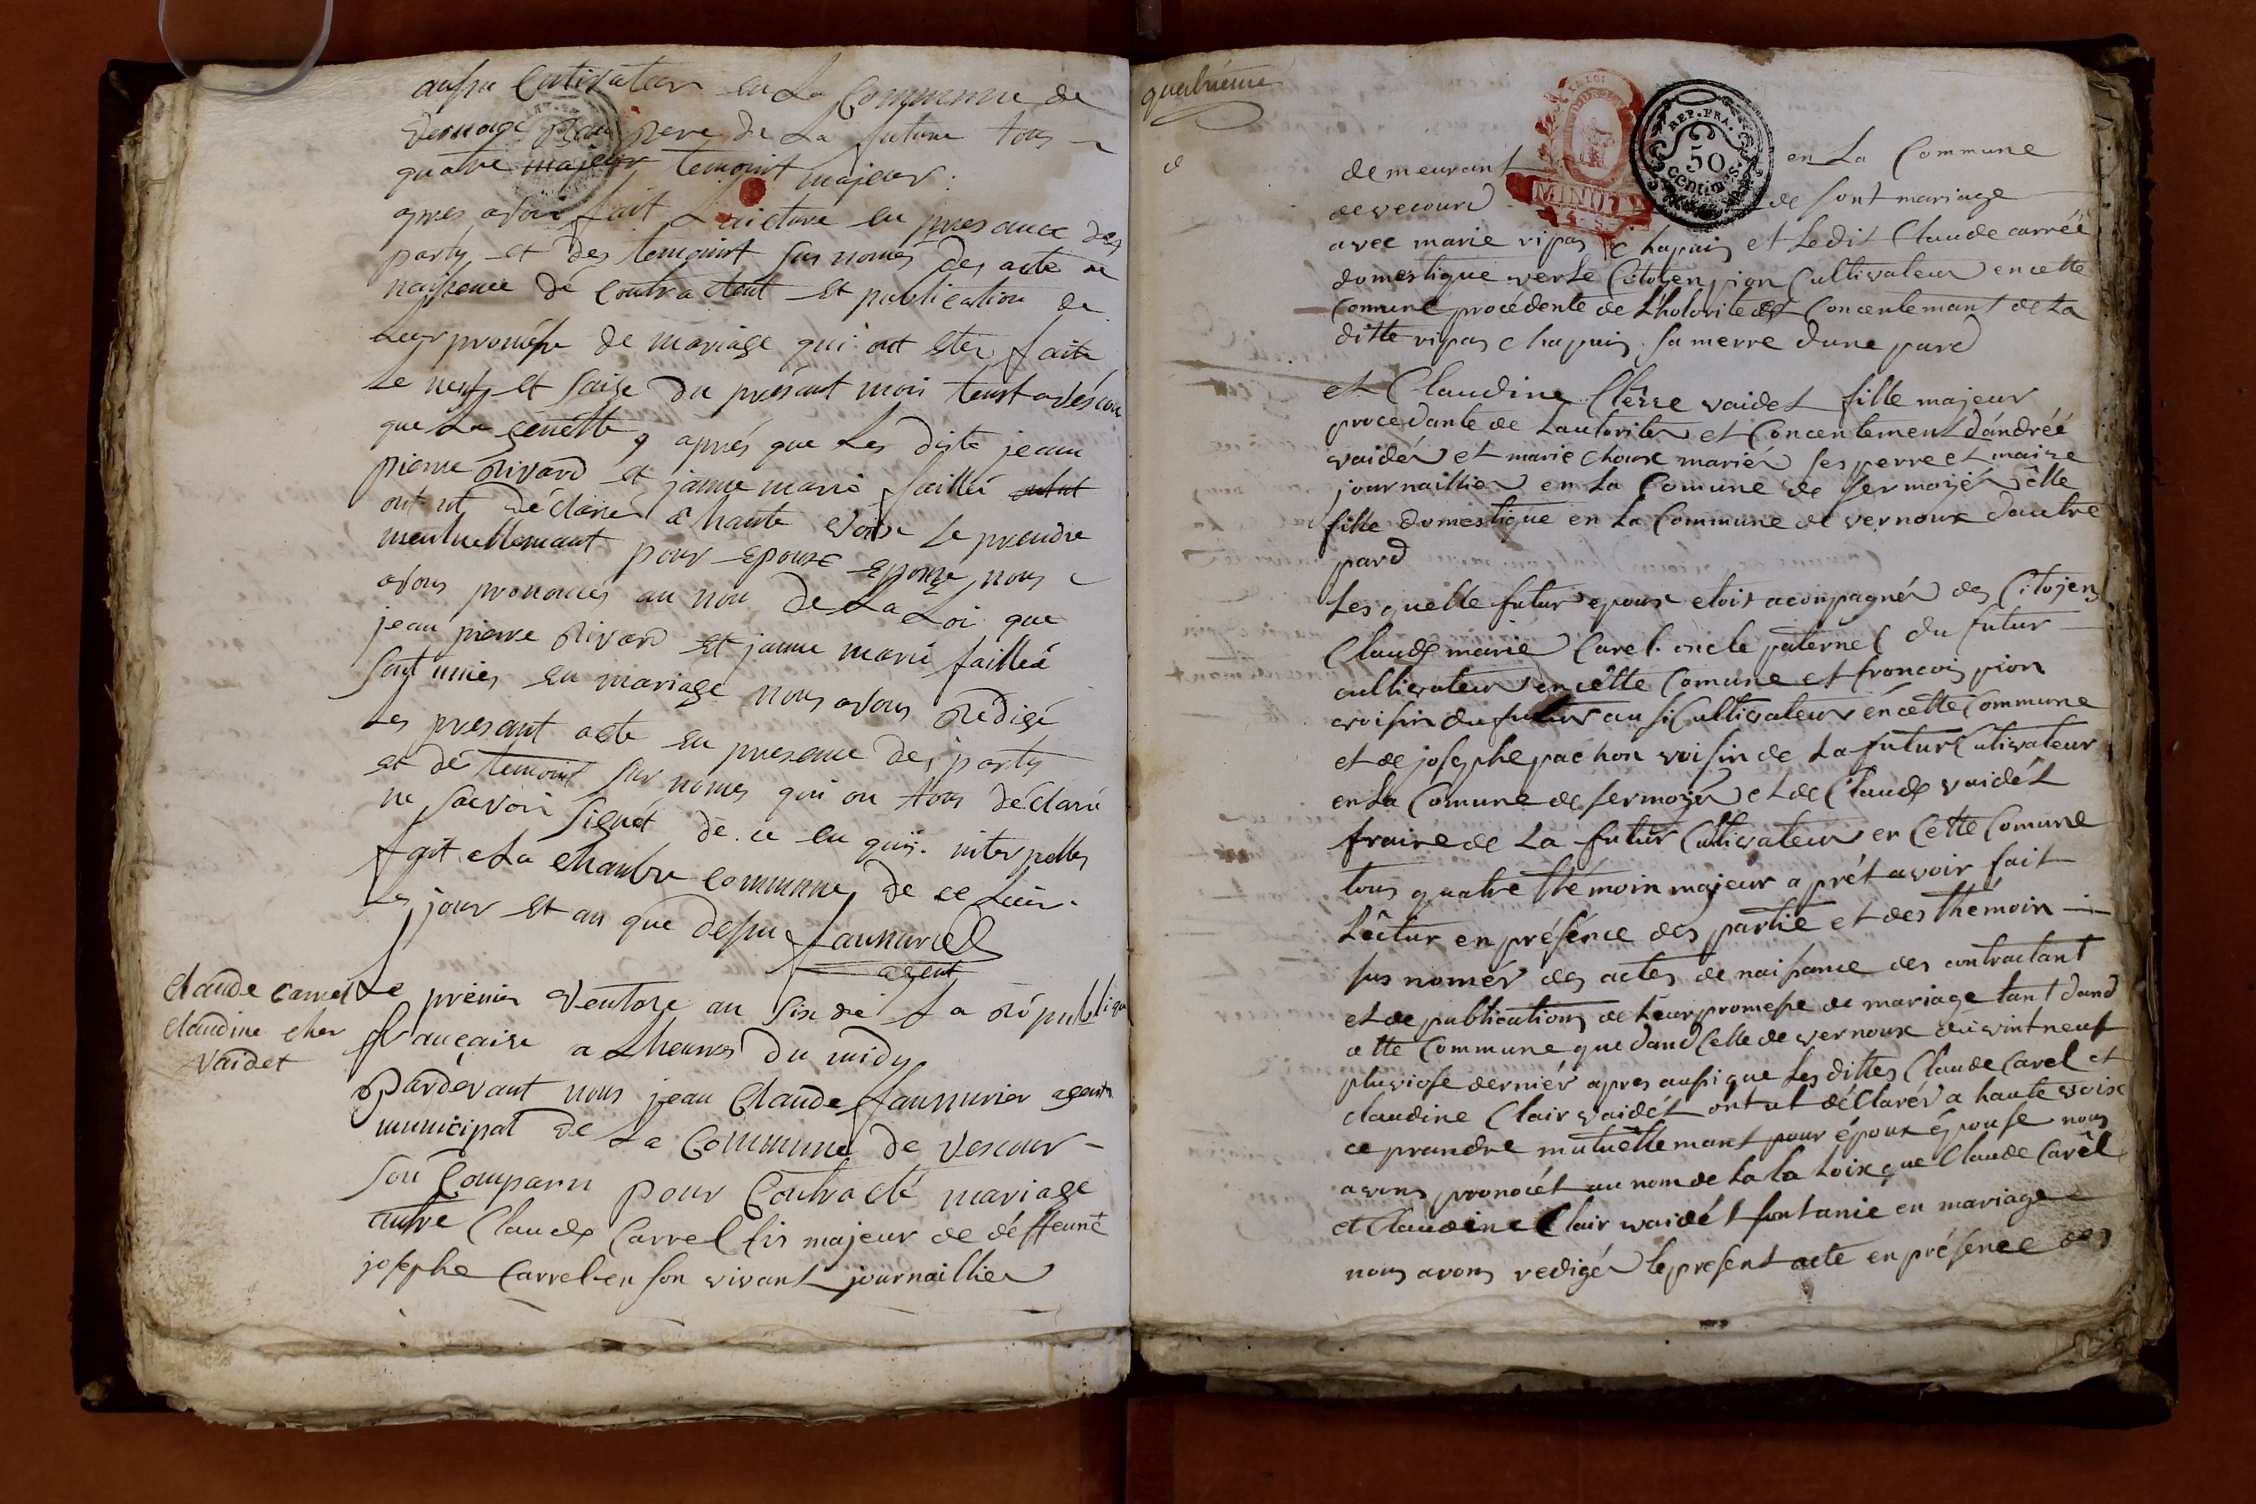 aussi Cultivateur en La Commune de
vernoux pere de La future tous
quatre majeur temoint majeur.
apres avoir fait Laicture en presance des
party et des temoint sus nomes des acte de
naissence dé Contractant et publication de
Leur promesse de mariage qui ont etes faite
Le neuf et saise du présant mois tent a véscou
que La genette, aprés que Les dite jean
pierre Rivard et janne marie faillié
ont ut déclarer a haute voix se prendre
meutuellemant pour epoux epouze, nous
avons pronocés au non de La Loi que
jean pierre Rivard et janne marie faillié
sont unies en mariage nous avons Rédigé
Les presant acte en presence des party
et dé temoint sus nomes qui on tous déclaré
ne sacvoir signét de ce en quis. interpelles
fait a La chanbre commune de ce Lieu.
Les jour et an que dessu
agent
Claude Carrel
Claudine cler
Vaidet
Le premier Ventose an six de La Républiqu
française a Lheures du midy
Pardevant nous jean Claude agent
municipal de La Commune de Vescour
son Comparu pour Contracté mariage
entre Claude Carrel fis majeur de déffeunt
josephe Carrel en son vivant journaillier
quatrieme
demeurant en La Commune
de vecourd de sont mariage
avec marie ripas chapuis et Ledit Claude carréé
domestique verse Citoyen pion Cultivateur en cette
Comune procédente de L'hotorite et Concentemant de La
ditte ripas chapuis sa merre dune pard
et Claudine Clerre vaidet fille majeur
procedante de Lautoriter et Concentement dándréé
vaidér et marie choux mariér ses perre et maire
journaillier en La Comune de sermozér elle
fille domestique en La Commune de vernoux dautre
pard
Les quelle futur epoux etoit aconpagnér des Citoyens
Claude marie Carel. oncle paternel du futur
cultivateur en cette Comune et francois pion
voisin du futur ausi Cultivateur én cette Commune
et de josephe pachon voisin de La futur Cutivateur
en La Comune de sermozér et de Claude vaidét
fraire de La futur Cultivateur en Cette Comune
tous quatre thémoin majeur a prét avoir fait
Lêctur en présénce des partie et des thémoin
sus nomér des actes de naisance des contractant
et de publications de Leur promesse de mariage tant dand
cette Commune que dand Celle de vernoux du vint neuf
pluviose derniér apres ausi que Les dittes Claude Carel et
claudine Clair vaidét ont ut déClarér a haute voix
ce prandre mutuellemant pour époux épouse nous
avons pronocét au nom de La La Loix que Claude Carêl
et Claudine Clair vaidét sont anie én mariage
nous avons redigér le present acte en présence des
REP. FRA.
50
centimes
MINUTE